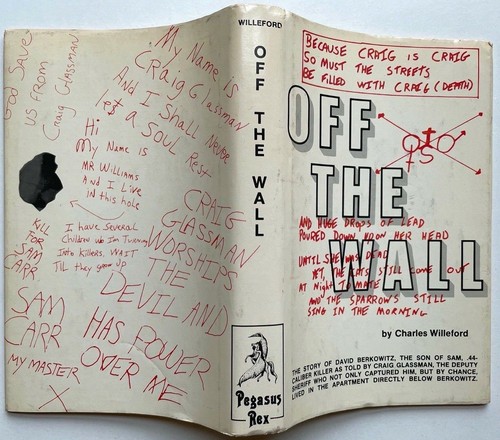 GOD SAVE
US FROM
Craig Glassman
My Name is
Craig Glassman
And I Shall Never
let a SOUL Rest
Hi
My Name is
MR Williams
And I Live
in this hole
I have Several
Children who I'm Turning
Into Killers. WAIT
Till they grow up
KILL
FOR
SAM
CARR
SAM
CARR
MY MASTER
CRAIG
GLASSMAN
WORSHIPS
THE
DEVIL AND
HAS POWER
OVER ME
WILLEFORD
OFF THE WALL
Pegasus
Rex
BECAUSE CRAIG IS CRAIG
SO MUST THE STREETS
BE FILLED WITH CRAIG (DEATH)
OFF
THE
WALL
AND HUGE DROPS OF LEAD
POURED DOWN UPON HER HEAD
UNTIL SHE WAS DEAD
THE CATS STILL COME OUT
At Night TO MATE
AND THE SPARROWS STILL
SING IN THE MORNING
by Charles Willeford
THE STORY OF DAVID BERKOWITZ, THE SON OF SAM, .44-
CALIBER KILLER AS TOLD BY CRAIG GLASSMAN, THE DEPUTY
SHERIFF WHO NOT ONLY CAPTURED HIM, BUT BY CHANCE,
LIVED IN THE APARTMENT DIRECTLY BELOW BERKOWITZ.